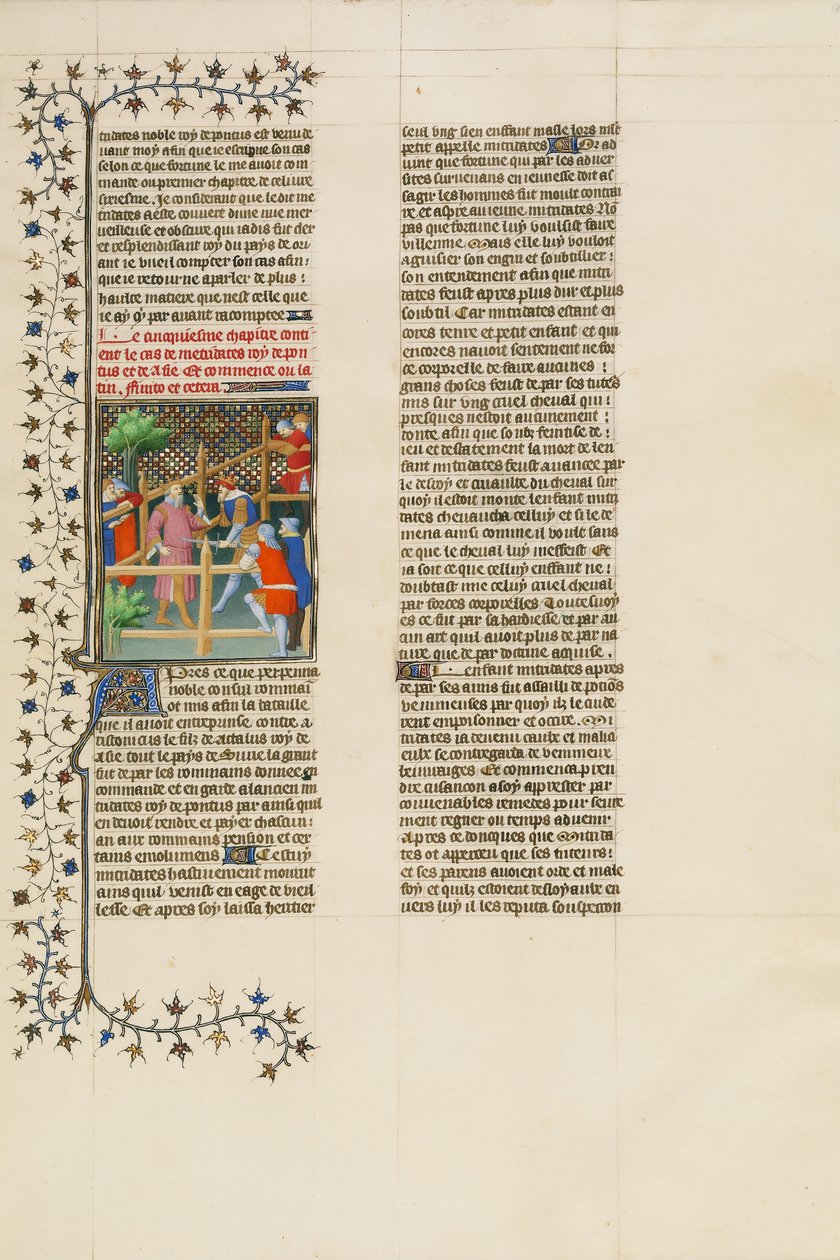 tridates noble roy de pontus est venu de
uant moy afin que ie escripue son cas
selon ce que fortune le me auoit com
mande ou premier chapitre de ce liure
sixiesme. Je considerant que ledit me
tridates a este couuert dune nue mer
ueilleuse et obscure qui iadis fut cler
et resplendissant roy du pays de ori
ant ie vueil compter son cas afin :
que ie retourne a parler de plus :
haulte matiere que nest celle que
ie ay cy par auant racomptee
Le cinquiesme chapitre conti
ent le cas de metridates roy de pon
tus et de Asie Et commence ou la
tin. ffinito et cetera.
Apres ce que perpenna
noble consul rommai
ot mis afin la bataille
que il auoit entreprinse contre a
ristonicus le filz de Attalus roy de
Asie tout le pays de Sirie la grant
fut de par les rommains donnee en
commande et en garde a lancien mi
tridates roy de pontus par ainsi quil
en deuoit rendre et payer chascun :
an aux rommains pension et cer
tains emolumens Cestuy
mitridates hastiuement mourut
ains quil venist en eage de vieil
lesse Et apres soy laissa heritier
seul vng sien enffant masle lors mlt
petit appelle mitridates Or ad
uint que fortune qui par les aduer
sites suruenans en ieunesse doit as
sagir les hommes fut moult contrai
re et aspre au ieune mitridates No
pas que fortune luy voulsist faire
villennie Mais elle luy vouloit
aguisier son engin et soubtillier :
son entendement afin que mitri
dates feust apres plus dur et plus
soubtil Car mitridates estant en
cores tenre et petit enfant et qui
encores nauoit sentement ne for
ce corporelle de faire aucunes :
grans choses feust de par ses tutes
mis sur vng cruel cheval qui :
presques nestoit aucunement :
donte afin que soubz feintise de :
ieu et desbatement la mort de len
fant mitridates feust auancee par
le desroy et cruaulte du cheval sur
quoy il estoit monte lenfant mitri
dates cheuaucha celluy et si le de
mena ainsi comme il voult sans
ce que le cheval luy meffeist Et
ia soit ce que celluy enffant ne :
doubtast mie celuy cruel cheval
par forces corporelles Toutesuoy
es ce fut par sa hardiesse et par au
cun art quil auoit plus de par na
ture que de par doctrine acquise.
Lenfant mitridates apres
de par ses amis fut assailli de potios
venimeuses par quoy ilz le cuide
rent empoisonner et occire. Mi
tridates ia deuenu caulx et malici
eulx se contregarda de venimeux
beuurages Et commenca pren
dre cusancon a soy apprester par
conuenables remedes pour seure
ment regner ou temps aduenir
Apres ce doncques que Mitrida
tes ot apperceu que ses tuteurs :
et ses parens auoient orde et male
foy et quilz estoient desloyaulx en
uers luy il les reputa souspecon